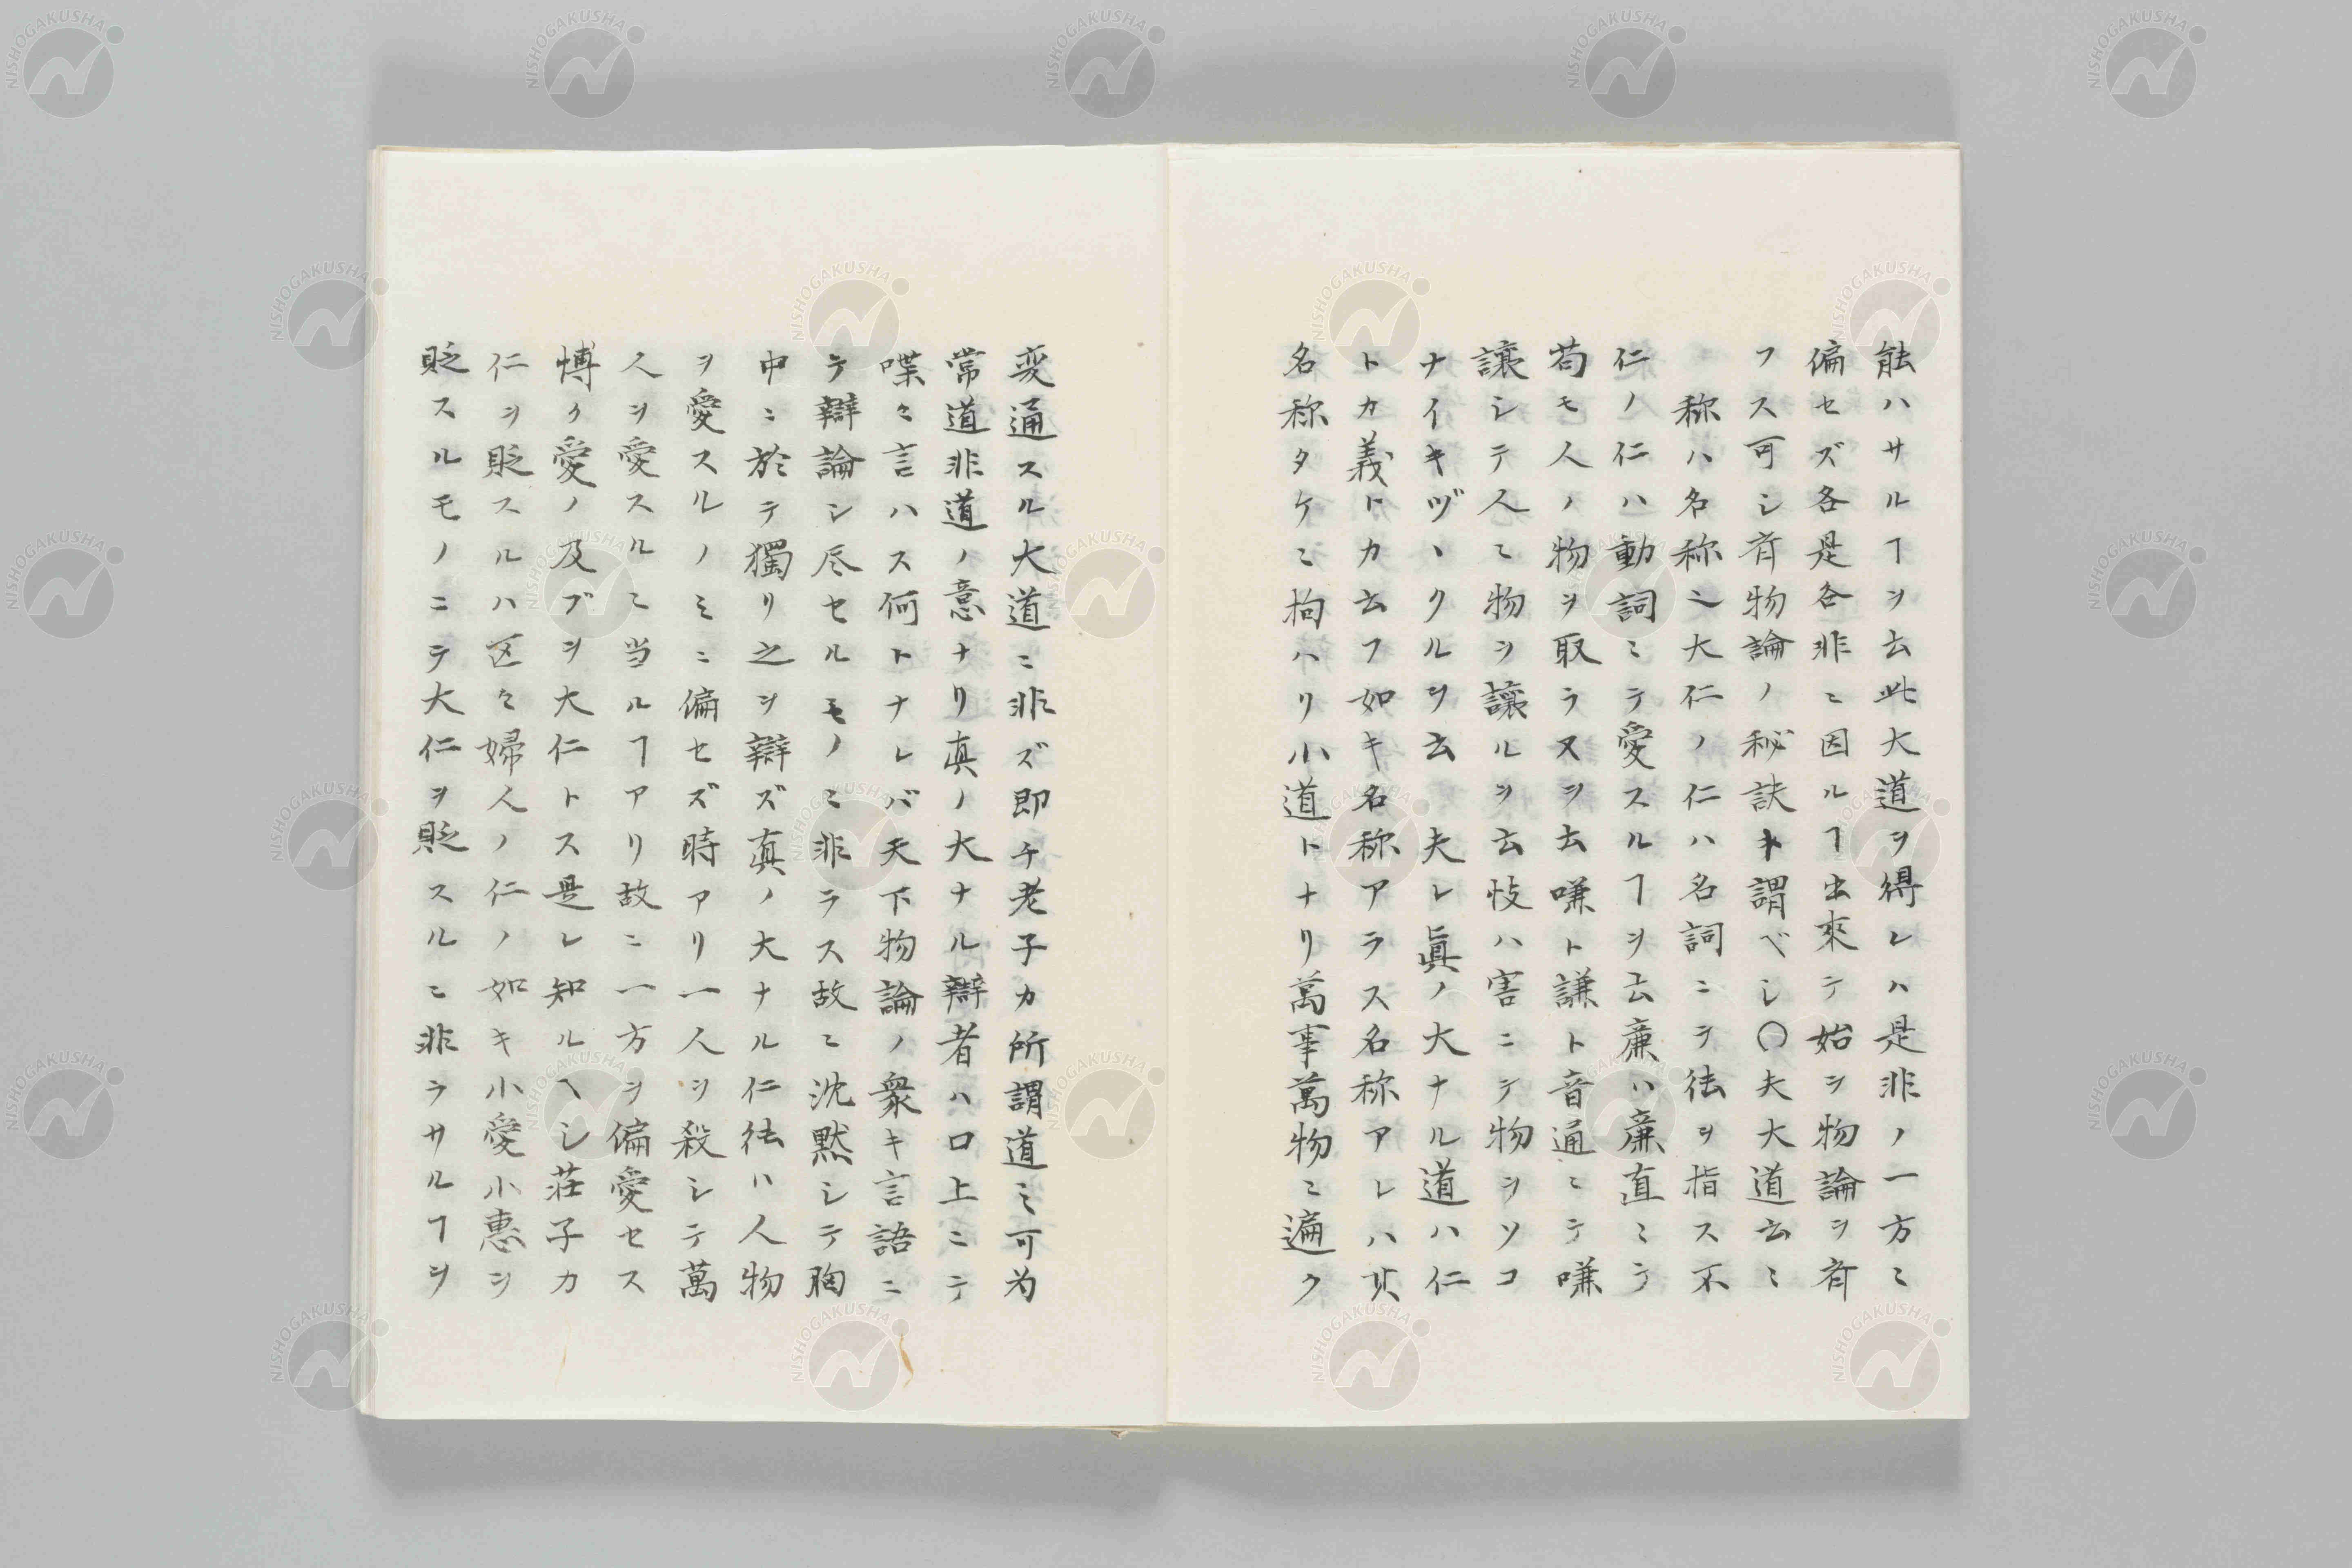 能ハサルヿヲ云此大道ヲ得レハ是非ノ一方ニ
偏セズ各是各非ニ因ルヿ出來テ始ヲ物論ヲ斉
フス可シ斉物論ノ秘訣ト謂ベシ〇夫大道云ミ
ニ称ハ名称ニ大仁ノ仁ハ名詞ニテ徳ヲ指ス不
仁ノ仁ハ動詞ミテ愛スルヿヲ云廉ハ廉直ミテ
苟モ人ノ物ヲ取ラヌヲ云嗛ト謙ト音通ミテ嗛
讓シテ人ニ物ヲ讓ルヲ云忮ハ害ニテ物ヲソコ
ナイキヅヽクルヲ云 夫レ眞ノ大ナル道ハ仁
トカ義トカ云フ如キ名称アラス名称アレハ其
名称タケニ拘ハリ小道トナリ萬事萬物ニ遍ク
変通スル大道ニ非ズ即チ老子カ所謂道ミ可为
常道非道ノ意ナリ真ノ大ナル辯者ハ口上ニテ
喋々言ハス何トナレバ天下物論ノ衆キ言語ニ
テ辯論シ尽セルモノニ非ラス故ニ沈黙シテ胸
中ニ於テ獨リ之ヲ辯ズ真ノ大ナル仁徳ハ人物
ヲ愛スルノミニ偏セズ時アリ一人ヲ殺シテ萬
人ヲ愛スルニ当ルヿアリ故ニ一方ヲ偏愛セス
博ク愛ノ及ブヲ大仁トス是レ知ルヘシ荘子カ
仁ヲ貶スルハ区々婦人ノ仁ノ如キ小愛小惠ヲ
貶スルモノニテ大仁ヲ貶スルニ非ラサルヿヲ